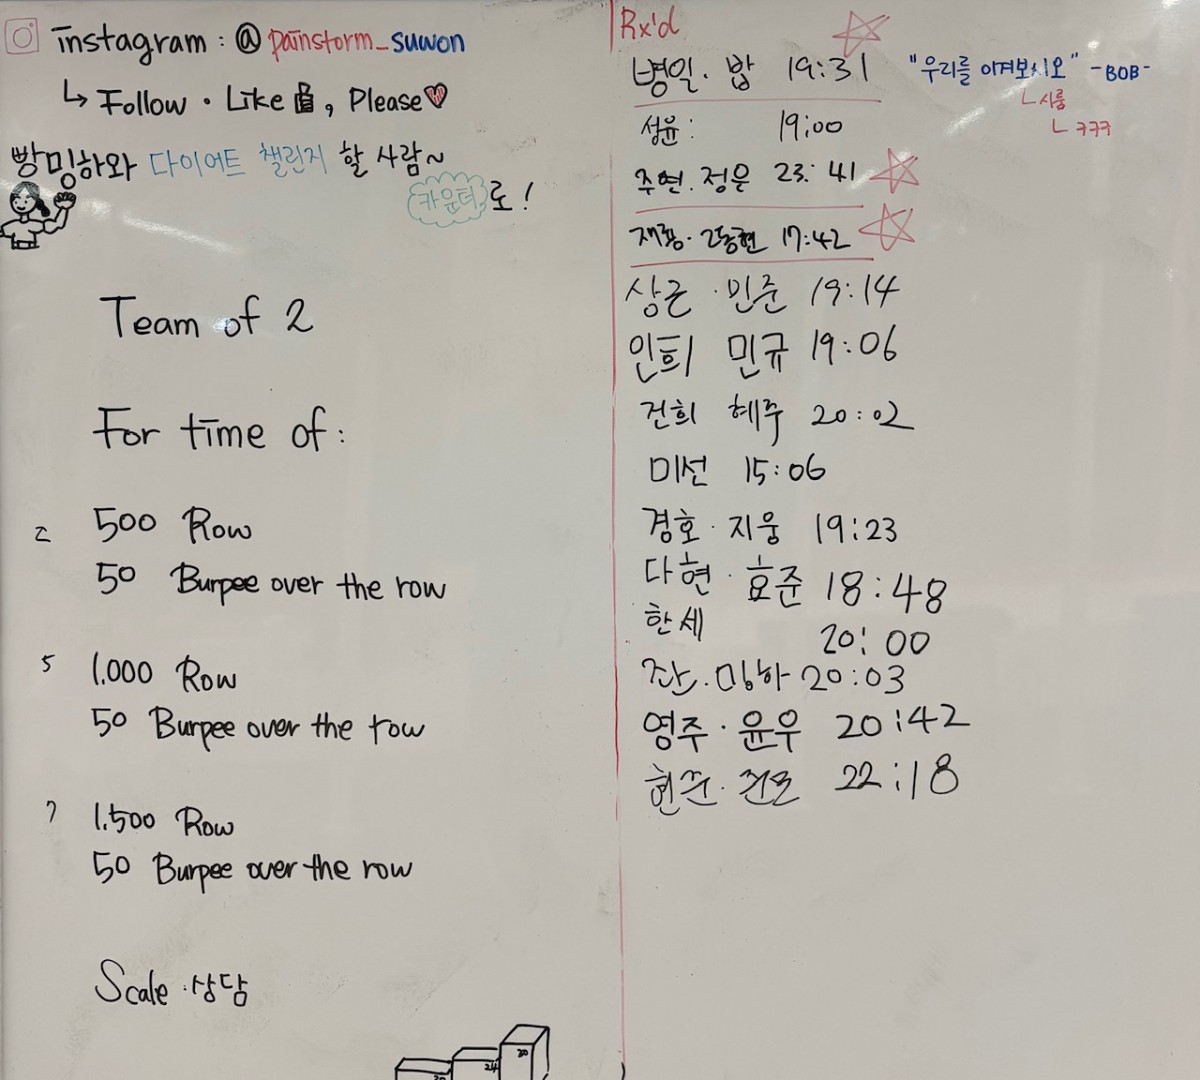 instagram : @ painstorm_suwon
↳ Follow · Like , Please
빵밍하와 다이어트 챌린지 할 사람~
카운터로!
Team of 2
For time of:
2 500 Row
50 Burpee over the row
5 1.000 Row
50 Burpee over the row
7 1.500 Row
50 Burpee over the row
Scale · 상담
20 24 30
Rx'd
병일 · 밥 19:31 "우리를 이겨보시오" -BOB-
ㄴ시룸
ㄴ ㅋㅋㅋ
성윤 : 19:00
주연 . 정은 23:41
17:42
상근 · 민준 19:14
인희 민규 19:06
건희 혜주 20:02
미선 15:06
경호 · 지웅 19:23
다현 · 효준 18:48
한세 20:00
밍하 20:03
영주 · 윤우 20:42
현준 . 22:18